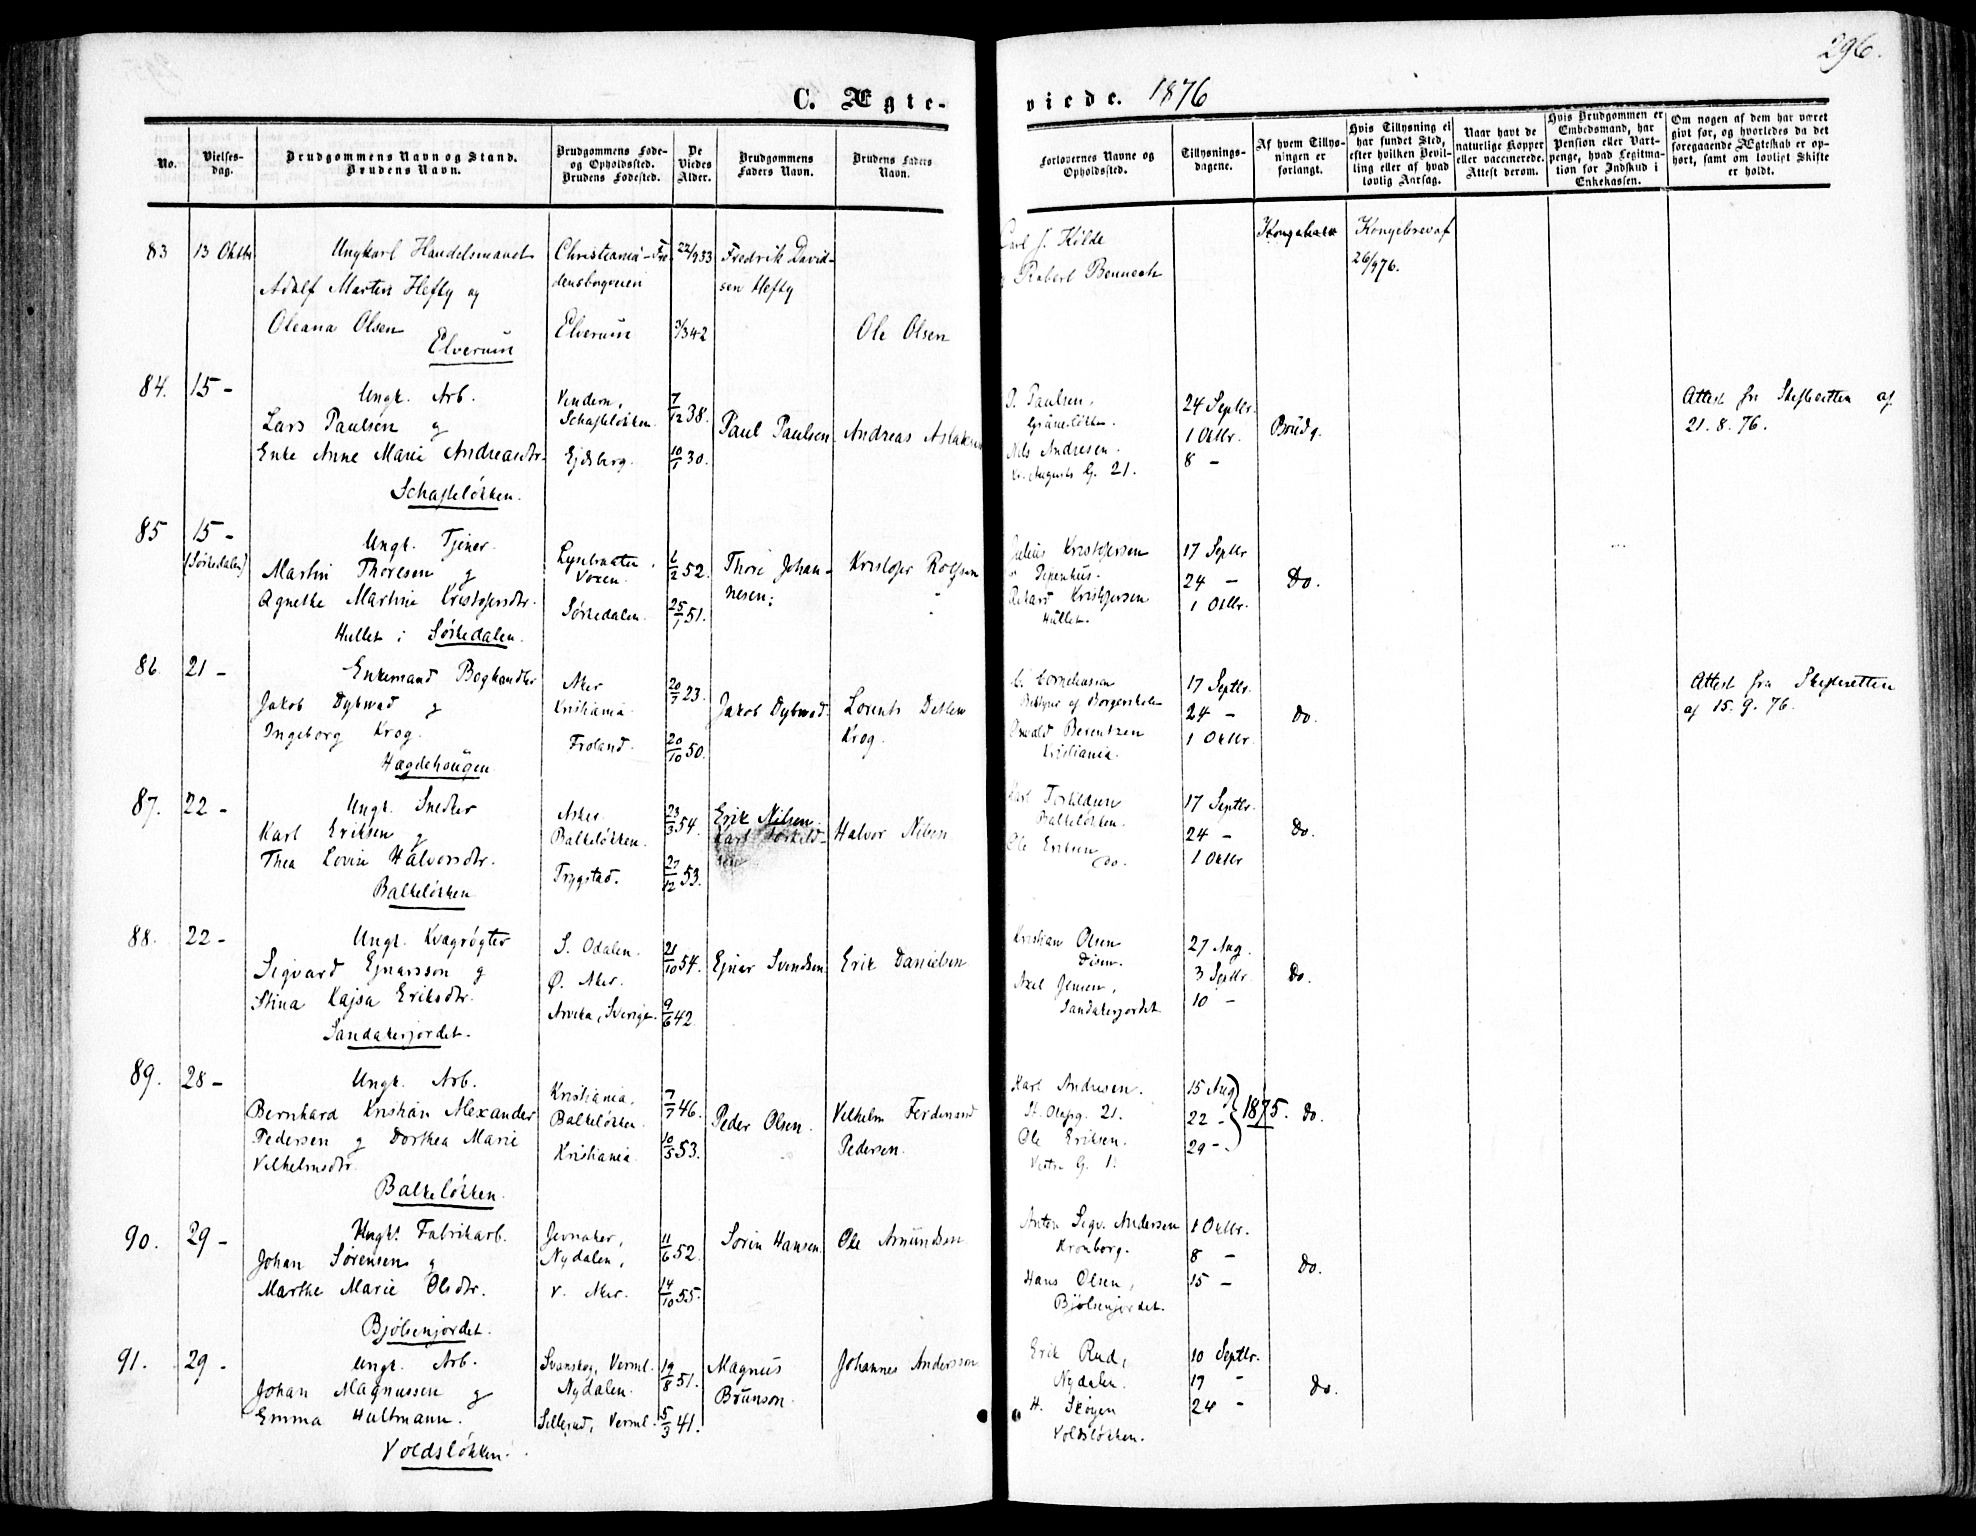 296.
C. Ægte-
viede. 1876
No.
Vielses-
dag.
Brudgommens Navn og Stand.
Brudens Navn.
Brudgommens Føde-
og Opholdssted.
Brudens Fødested.
De
Viedes
Alder.
Brudgommens
Faders Navn.
Brudens Faders
Navn.
Forlovernes Navne og
Opholdssted.
Tillysnings-
dagene.
Af hvem Tillys-
ningen er
forlangt.
Hvis Tillysning ei
har fundet Sted,
efter hvilken Bevil-
ling eller af hvad
lovlig Aarsag.
Naar havt de
naturlige Kopper
eller vaccinerede.
Attest derom.
Hvis Brudgommen er
Embedsmand, har
Pension eller Vart-
penge, hvad Legitima-
tion for Indskud i
Enkekassen.
Om nogen af dem har været
givt før, og hvorledes da det
foregaaende Ægteskab er op-
hørt, samt om lovligt Skifte
er holdt.
83 13 Oktbr
Ungkarl Handelsmand
Adolf Martin Hefty og
Oleana Olsen
Elverum
Christiania - Fre
densborgveien
Elverum
22/9 33
3/3 42
Fredrik David-
sen Hefty
Ole Olsen
Carl J. Kilde
Robert Bennech
Kongebrev af
26/9 76.
84. 15 -
Ungk. Arb.
Lars Paulsen g
Enke Anne Marie Andreasdtr.
Schafteløkken.
Vindern,
Schafteløkken.
Ejdsberg.
7/12 38.
10/1 30.
Paul Paulsen
Andreas Aslaksen
Paulsen,
Grünerløkken.
Nils Andresen.
Augusts G. 21.
24 Septbr.
1 Oktbr.
8 -
Brudg.
Attest fra Skifteretten af
21. 8. 76.
85 15 -
(Sørkedalen)
Ungk. Tjener.
Martin Thoresen g
Agnethe Martine Kristofersdtr.
Hullet i Sørkedalen.
Voxen.
Sørkedalen.
6/2 52.
25/7 51.
Thore Johan-
nesen.
Kristofer Rolfsen
Julius Kristofersen
Pipenhus.
Rikard Kristofersen
Hullet.
17 Septbr
24 -
1 Oktbr.
Do.
86. 21 -
Enkemand Boghandler
Jakob Dybwad g
Ingeborg Krog.
Hægdehaugen.
Aker
Kristiania.
Froland.
20/7 23.
20/10 50.
Jakob Dybwad.
Lorents Detlev
Krog.
C. Corneliussen
Bestyrer af Borgerskolen
Osvald Berentzen
Kristiania.
17 Septbr.
24 -
1 Oktbr.
Do.
Attest fra Skifteretten
af 15. 9. 76.
87. 22 -
Ungk. Snedker
Karl Eriksen g
Thea Lovise Halvorsdtr.
Balkeløkken
Asker.
Balkeløkken.
Trygstad.
23/3 54.
27/12 53.
Erik Nilsen.
Halvor Nilsen
Karl Torkildsen
Balkeløkken.
Ole Eriksen
Do.
17 Septbr.
24 -
1 Oktbr
Do.
88. 22 -
Ungk. Kvægrøgter
Sigvard Ejnarsson g
Stina Kajsa Eriksdtr.
Sandakerjordet.
S. Odalen.
Ø. Aker.
Arvika, Sverige.
21/10 54.
9/6 42
Ejnar Svendsen.
Erik Danielsen
Kristian Olsen
Disen.
Axel Jensen,
Sandakerjordet
27 Aug.
3 Septbr.
10 -
Do.
89. 28 -
Ungk. Arb.
Bernhard Kristian Alexander
Pedersen g Dorthea Marie
Vilhelmsdtr.
Balkeløkken.
Kristiania.
Balkeløkken.
Kristiania.
7/7 46.
10/5 53.
Peder Olsen.
Vilhelm Ferdinand
Pedersen.
Karl Andresen.
St. Olafsg. 21.
Ole Eriksen.
Vestre G. 1.
15 Aug
22 -
29 -
1875.
Do.
90. 29 -
Ungk. Fabrikarb.
Johan Sørensen g
Marthe Marie Olsdtr.
Bjølsenjordet.
Jevnaker,
Nydalen,
V. Aker.
11/6 52.
14/10 55.
Sørin Hansen.
Ole Amundsen
Anton Sigv. Andersen
Kronborg.
Hans Olsen,
Bjølsenjordet.
1 Oktbr.
8 -
15 -
Do.
91. 29 -
Ungk. Arb.
Johan Magnussen g
Emma Hultmann.
Voldsløkken.
Svanskog, Verml.
Nydalen.
Sillerud, Verml.
19/8 51.
5/3 41.
Magnus
Brunson.
Johannes Andersson
Erik Rud,
Nydalen.
H. Skøyen
Voldsløkken.
10 Septbr.
17 -
24 -
Do.